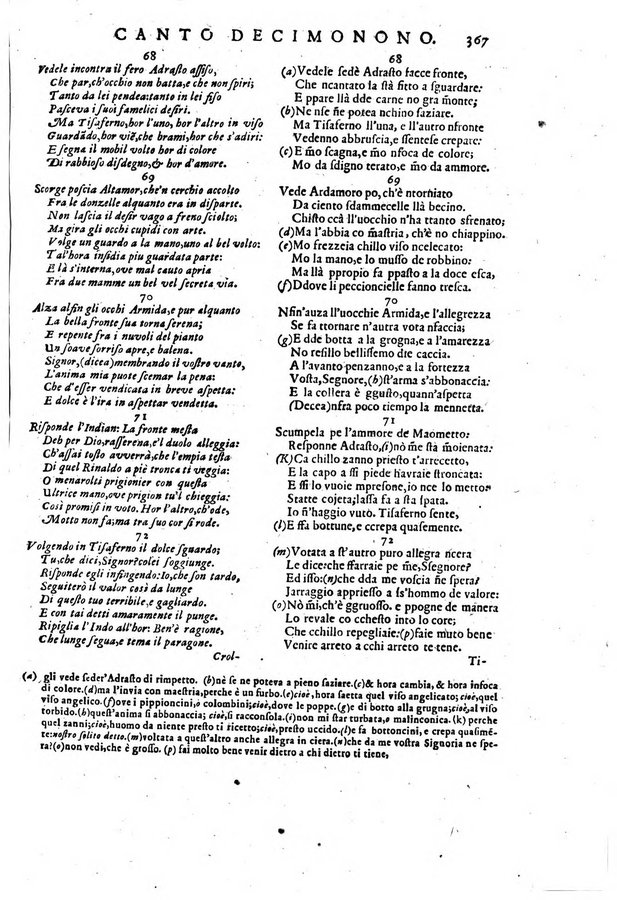 CANTO DECIMONONO. 367
68
Vedele incontra il fero Adrasto assiso,
Che par, ch'occhio non batta, e che non spiri;
Tanto da lei pendea: tanto in lei fiso
Pasceva i suoi famelici desiri.
Ma Tisaferno, hor l'uno, hor l'altro in viso
Guardãdo, hor viẽ, che brami, hor che s'adiri:
E segna il mobil volto hor di colore
Di rabbioso disdegno, & hor d'amore.
69
Scorge poscia Altamor, che'n cerchio accolto
Fra le donzelle alquanto era in disparte.
Non lascia il desir vago a freno sciolto;
Ma gira gli occhi cupidi con arte.
Volge un guardo a la mano, uno al bel volto:
Tal'hora insidia piu guardata parte:
E là s'interna, ove mal cauto apria
Fra due mamme un bel vel secreta via.
70
Alza alfin gli occhi Armida, e pur alquanto
La bella fronte sua torna serena;
E repente fra i nuvoli del pianto
Un soave sorriso apre, e balena.
Signor, (dicea) membrando il vostro vanto,
L'anima mia puote scemar la pena:
Che d'esser vendicata in breve aspetta:
E dolce è l'ira in aspettar vendetta.
71
Risponde l'Indian: La fronte mesta
Deh per Dio, rasserena, e'l duolo alleggia:
Ch'assai tosto avverrà, che l'empia testa
Di quel Rinaldo a piè tronca ti veggia:
O menarolti prigionier con questa
Ultrice mano, ove prigion tu'l chieggia:
Così promisi in voto. Hor l'altro, ch'ode,
Motto non fa; ma tra suo cor si rode.
72
Volgendo in Tisaferno il dolce sguardo;
Tu, che dici, Signor? colei soggiunge.
Risponde egli infingendo: Io, che son tardo,
Seguiterò il valor così da lunge
Di questo tuo terribile, e gagliardo.
E con tai detti amaramente il punge.
Ripiglia l'Indo all'hor: Ben'è ragione,
Che lunge segua, e tema il paragone.
Crol-
68
(a) Vedele sedè Adrasto facce fronte,
Che ncantato la stà fitto a sguardare:
E ppare llà dde carne no gra mõnte;
(b) Ne nse fie potea nchino saziare.
Ma Tisaferno ll'una, e ll'autro nfronte
Vedenno abbruscia, e ssentese crepare:
(c) E mõ scagna, e mõ nfoca de colore;
Mo da sdigno terato, e mõ da ammore.
69
Vede Ardamoro po, ch'è ntorniato
Da ciento sdammecelle llà becino.
Chisto ccà ll'uocchio n'ha ttanto sfrenato;
(d) Ma l'abbia co mastria, ch'è no chiappino.
(e) Mo frezzeia chillo viso ncelecato:
Mo la mano, e lo musso de robbino:
Ma llà ppropio fa ppasto a la doce esca,
(f) Ddove li peccioncielle fanno tresca.
70
Nfin'auza ll'uocchie Armida, e l'allegrezza
Se fa ttornare n'autra vota nfaccia;
(g) E dde botta a la grogna, e a l'amarezza
No resillo bellissemo dte caccia.
A l'avanto penzanno, e a la fortezza
Vosta, Segnore, (h) st'arma s'abbonaccia:
E la collera è ggusto, quann'aspetta
(Decea) nfra poco tiempo la mennetta.
71
Scumpela pe l'ammore de Maometto:
Responne Adrasto, (i) nò mẽ stà moienata:
(K) Ca chillo zanno priesto t'arrecetto,
E la capo a ssi piede havraie stroncata:
E ssi lo vuoie mpresone, io nce lo metto:
Statte cojeta; lassa fa a sta spata.
Io nhaggio fatto vuto. Tisaferno sente,
(l) E sfa bottune, e ccrepa quasemente.
72
(m) Votata a st'autro puro allegra ncera
Le dice: che sfarraie pe mme, Ssegnore?
Ed isso: (n) che dda me voscia fie spera?
Jarraggio appriesso a ss'hommo de valore:
(o) Nõ mi, ch'è ggruosso. e ppogne de manera
Lo revale co cchesto into lo core;
Che cchillo repegliaie: (p) faie muto bene
Venire arreto a cchi arreto te tene.
Ti-
(a) gli vede seder'Adrasto di rimpetto. (b) nè se ne poteva a pieno saziare. (c) & hora cambia, & hora infoca
di colore. (d) ma l'invia con maestria, perche è un furbo. (e) cioè, hora saetta quel viso angelicato; cioè, quel
viso angelico. (f) ove i pippioncini, ò colombini; cioè, dove le poppe. (g) e di botto alla grugna; cioè, al viso
torbido. (h) quest'anima si abbonaccia; cioè, si racconsola. (i) non mi star turbata, o malinconica. (k) perche
quel zanni; cioè, huomo da niente presto ti ricetto; cioè, presto uccido. (l) e fa bottoncini, e crepa quasimẽ-
te: nostro solito detto. (m) voltata a quest'altro anche allegra in ciera. (n) che da me vostra Signoria ne spe-
ra? (o) non vedi, che è grosso. (p) fai molto bene venir dietro a chi dietro ti tiene,